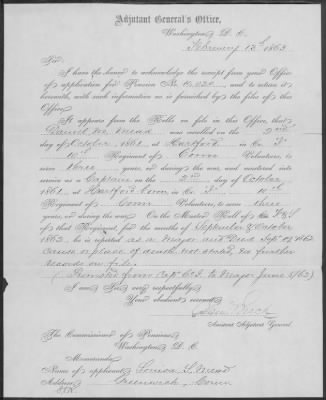 Adjutant General's Office,
Washington D. C.
February 13th 1863
Sir:
I have the honor to acknowledge the receipt from your Office
of application for Pension No. and to return it
herewith, with such information as is furnished by the files of this
Office.
It appears from the Rolls on file in this Office, that
Daniel M. Mead was enrolled on the 2nd
day of October 1861 at Hartford in Co. F
10th Regiment of Conn Volunteers, to
serve three years, or during the war, and mustered into
service as a Captain on the 2nd day of October
1861, at Hartford Conn in Co. F 10th
Regiment of Conn Volunteers, to serve three
years, or during the war. On the Muster Roll of F&S
of that Regiment, for the months of September & October
1862, he is reported as a Major and Died Sept 1862
cause or place of death not stated, no further
records on file.
(Promoted from Capt Co. F. to Major June 1862)
I am Sir Very respectfully
Your obedient servant
Assistant Adjutant General
The Commissioner of Pensions
Washington D. C.
Memoranda
Name of applicant Louisa S. Mead
Address Greenwich, Conn